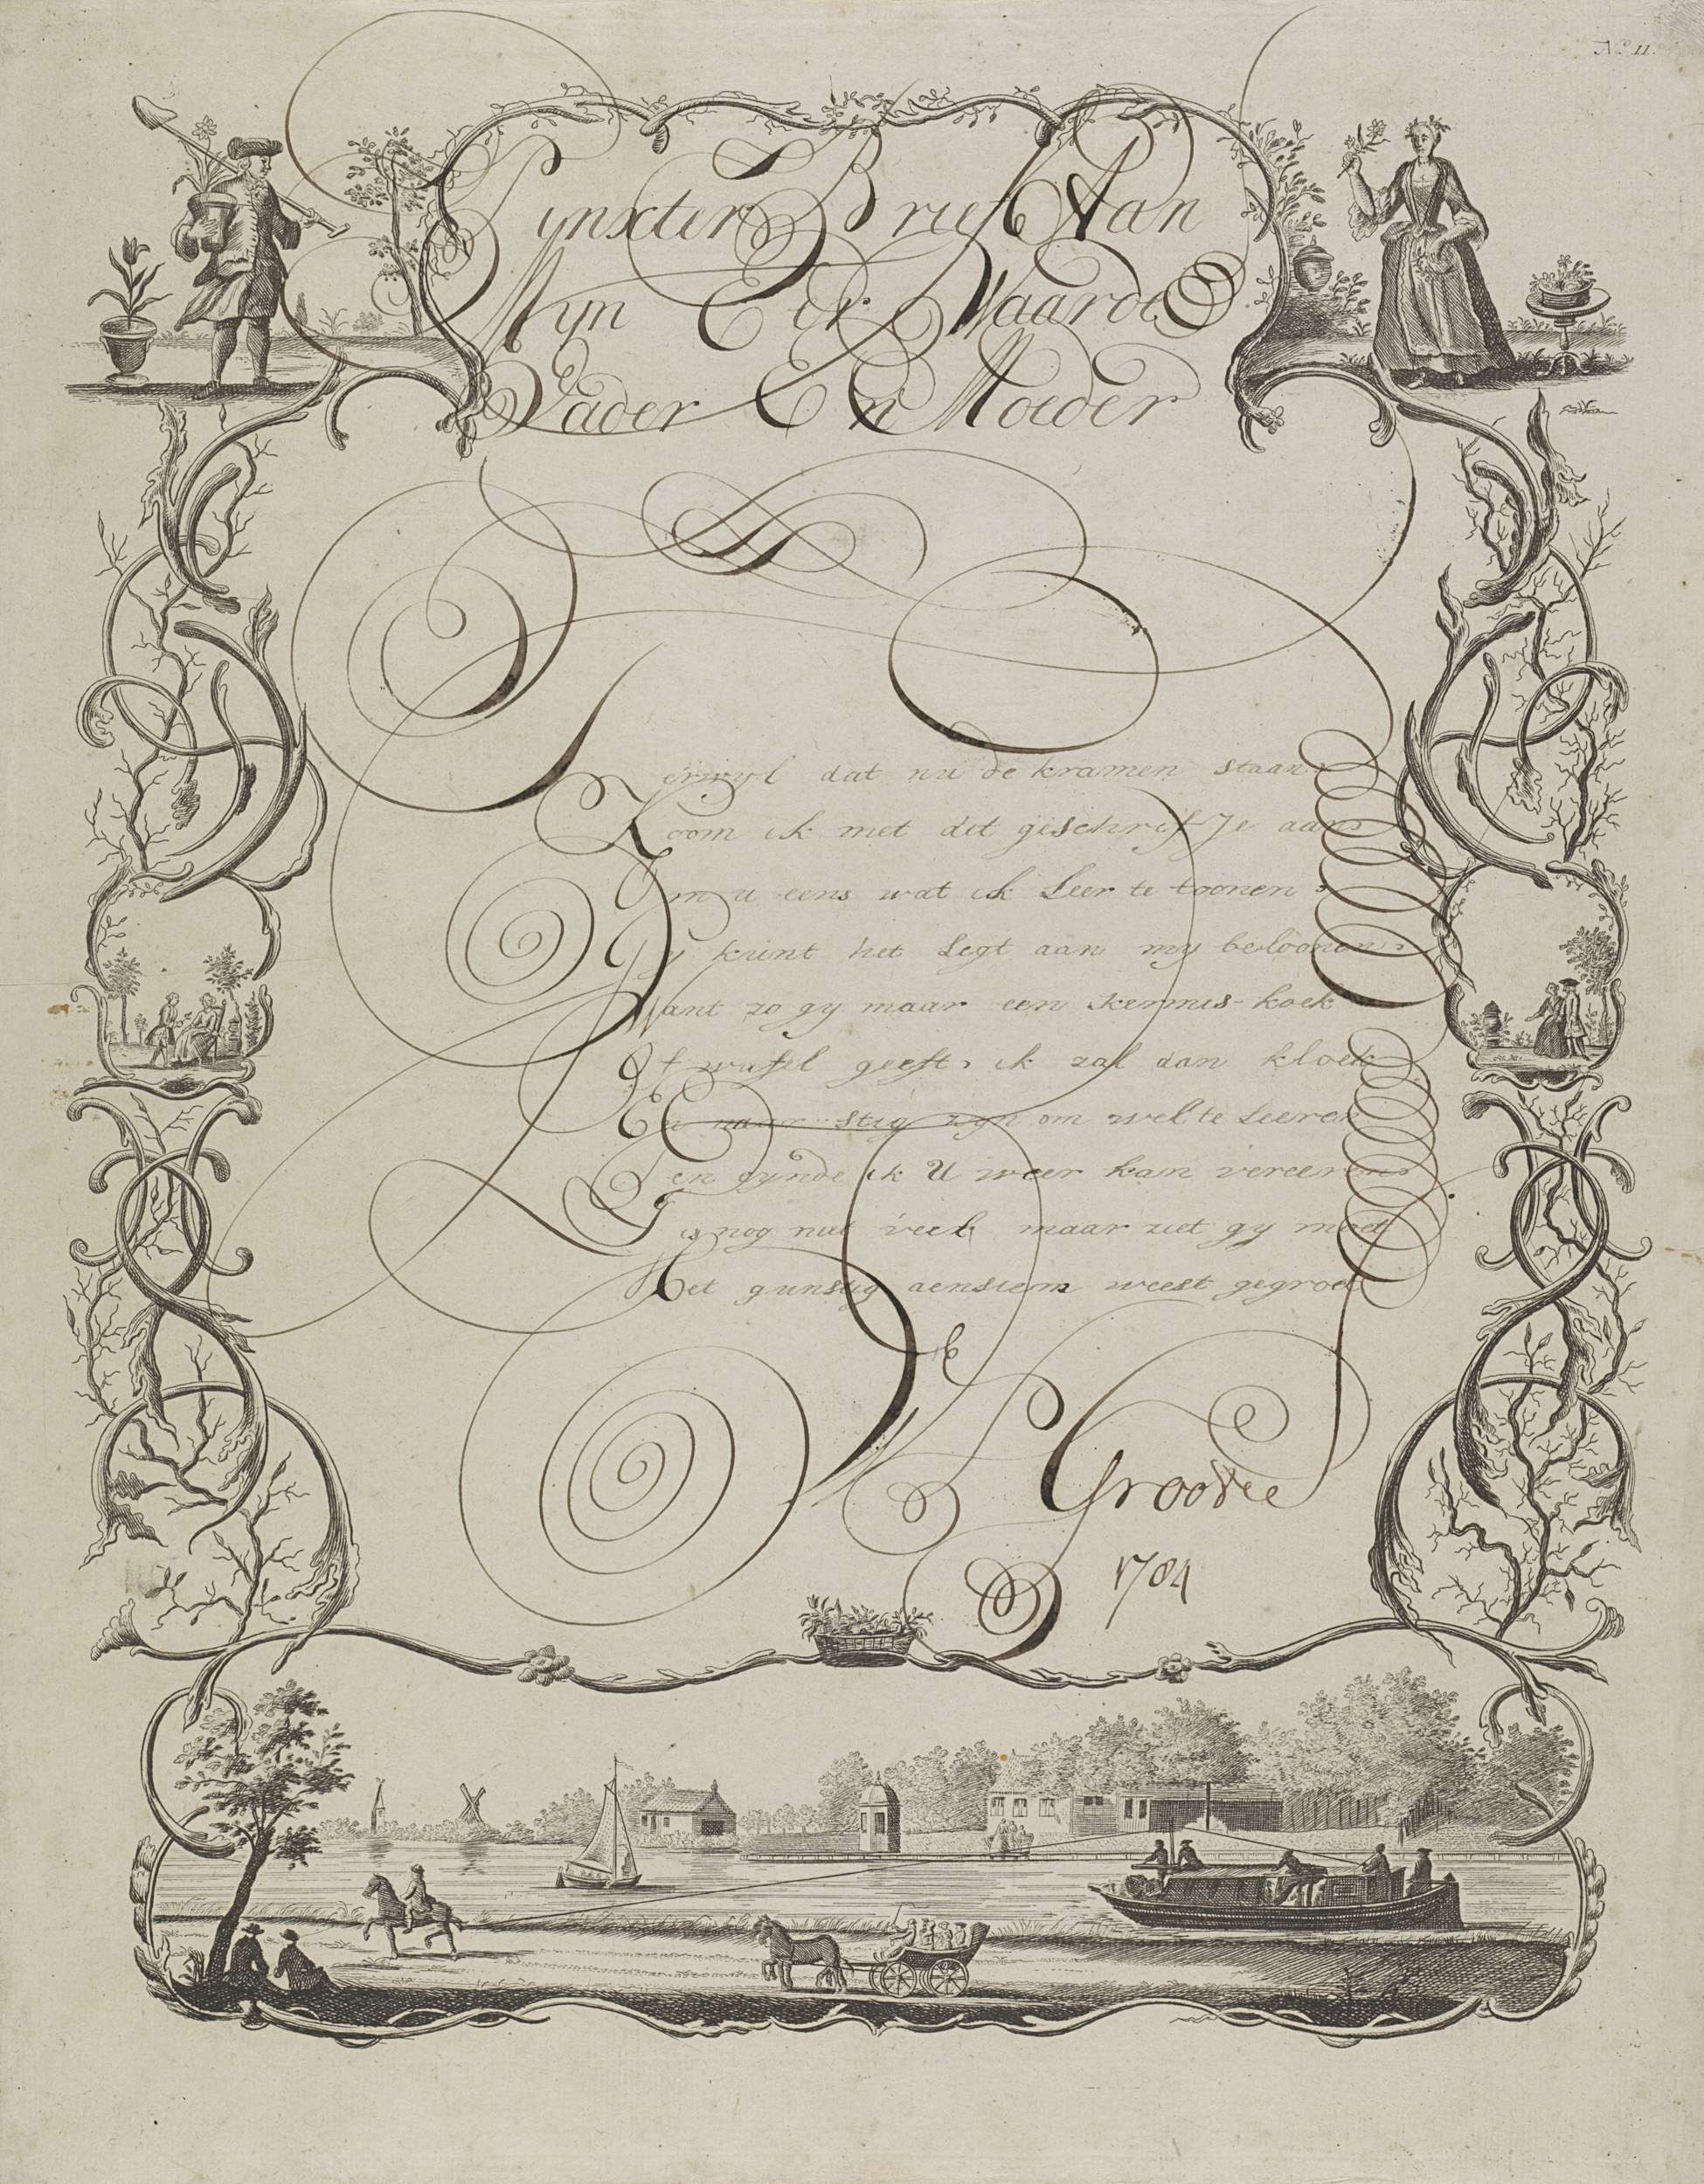 No. 11.
Pinxter Brief Aan
Myn Eer Waarde
Vader En Moeder
Terwyl dat nu de kramen staan
Koom ik met dit geschrifje aan
Om u eens wat ik Leer te toonen
Gy kunt het Legt aan my beloonen
Want zo gy maar een kermis-koek
Of wafel geeft, ik zal dan kloek
En naar stig zyn om wel te Leeren
Ten eynde ik U weer kan vereeren
T is nog niet veel maar ziet gy moet
Het gunstig aensiem weest gegroet
Groode
1784